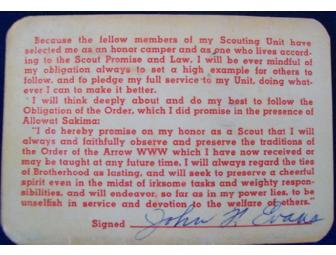 Because the fellow members of my Scouting Unit have
selected me as an honor camper and as one who lives accord-
ing to the Scout Promise and Law, I will be ever mindful of
my obligation always to set a high example for others to
follow, and to pledge my full service to my Unit, doing what-
ever I can to make it better.
I will think deeply about and do my best to follow the
Obligation of the Order, which I did promise in the presence of
Allowat Sakima:
"I do hereby promise on my honor as a Scout that I will
always and faithfully observe and preserve the traditions of
the Order of the Arrow WWW which I have now received or
may be taught at any future time. I will always regard the ties
of Brotherhood as lasting, and will seek to preserve a cheerful
spirit even in the midst of irksome tasks and weighty respon-
sibilities, and will endeavor, so far as in my power lies, to be
unselfish in service and devotion to the welfare of others."
Signed John N Evans